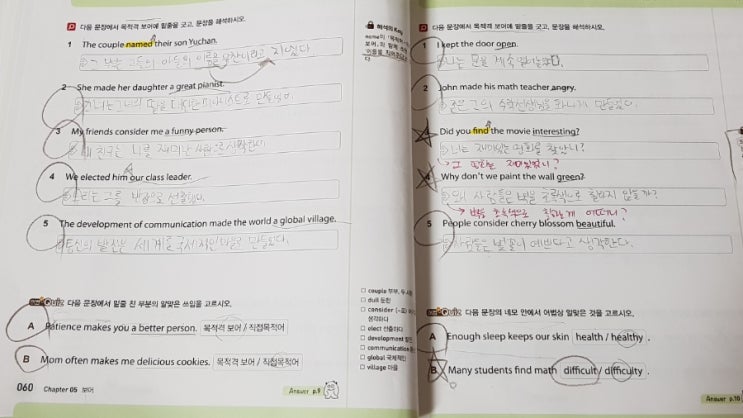 D 다음 문장에서 목적격 보어에 밑줄을 긋고, 문장을 해석하시오.
1 The couple named their son Yuchan.
그 부부는 그들의 아들의 이름을 유찬이라고 지었다
2 She made her daughter a great pianist.
그녀는 그녀의 딸을 대단한 피아니스트로 만들었어.
3 My friends consider me a funny person.
내 친구는 나를 재미난 사람으로 생각한다.
4 We elected him our class leader.
우리는 그를 반장으로 선출했어.
5 The development of communication made the world a global village.
통신의 발전은 세계를 국제적인 마을로 만들었다.
Quiz 다음 문장에서 밑줄 친 부분의 알맞은 쓰임을 고르시오.
A Patience makes you a better person. 목적격 보어 / 직접목적어
B Mom often makes me delicious cookies. 목적격 보어 / 직접목적어
060 Chapter 05 보어
Answer p.9
해석의 Key
couple 부부,
dull 둔한
consider
생각하다
elect 선출하다
development
communication
global 국제적인
village 마을
D 다음 문장에서 목적격 보어에 밑줄을 긋고, 문장을 해석하시오.
1 I kept the door open.
나는 문을 계속
2 John made his math teacher angry.
존은 그의 수학선생님을 화나게 만들었다.
3 Did you find the movie interesting?
너는 재미있는 영화를 찾았니?
→ 그 영화는 재미있었니?
4 Why don't we paint the wall green?
우리 사람들은 벽을 초록색으로 칠하지 않을까?
→ 벽을 초록색으로 칠하는게 어떠니?
5 People consider cherry blossom beautiful.
사람들은 벚꽃이 예쁘다고 생각한다.
Quiz 다음 문장의 네모 안에서 어법상 알맞은 것을 고르시오.
A Enough sleep keeps our skin health / healthy .
B Many students find math difficult / difficulty .
Answer p.10